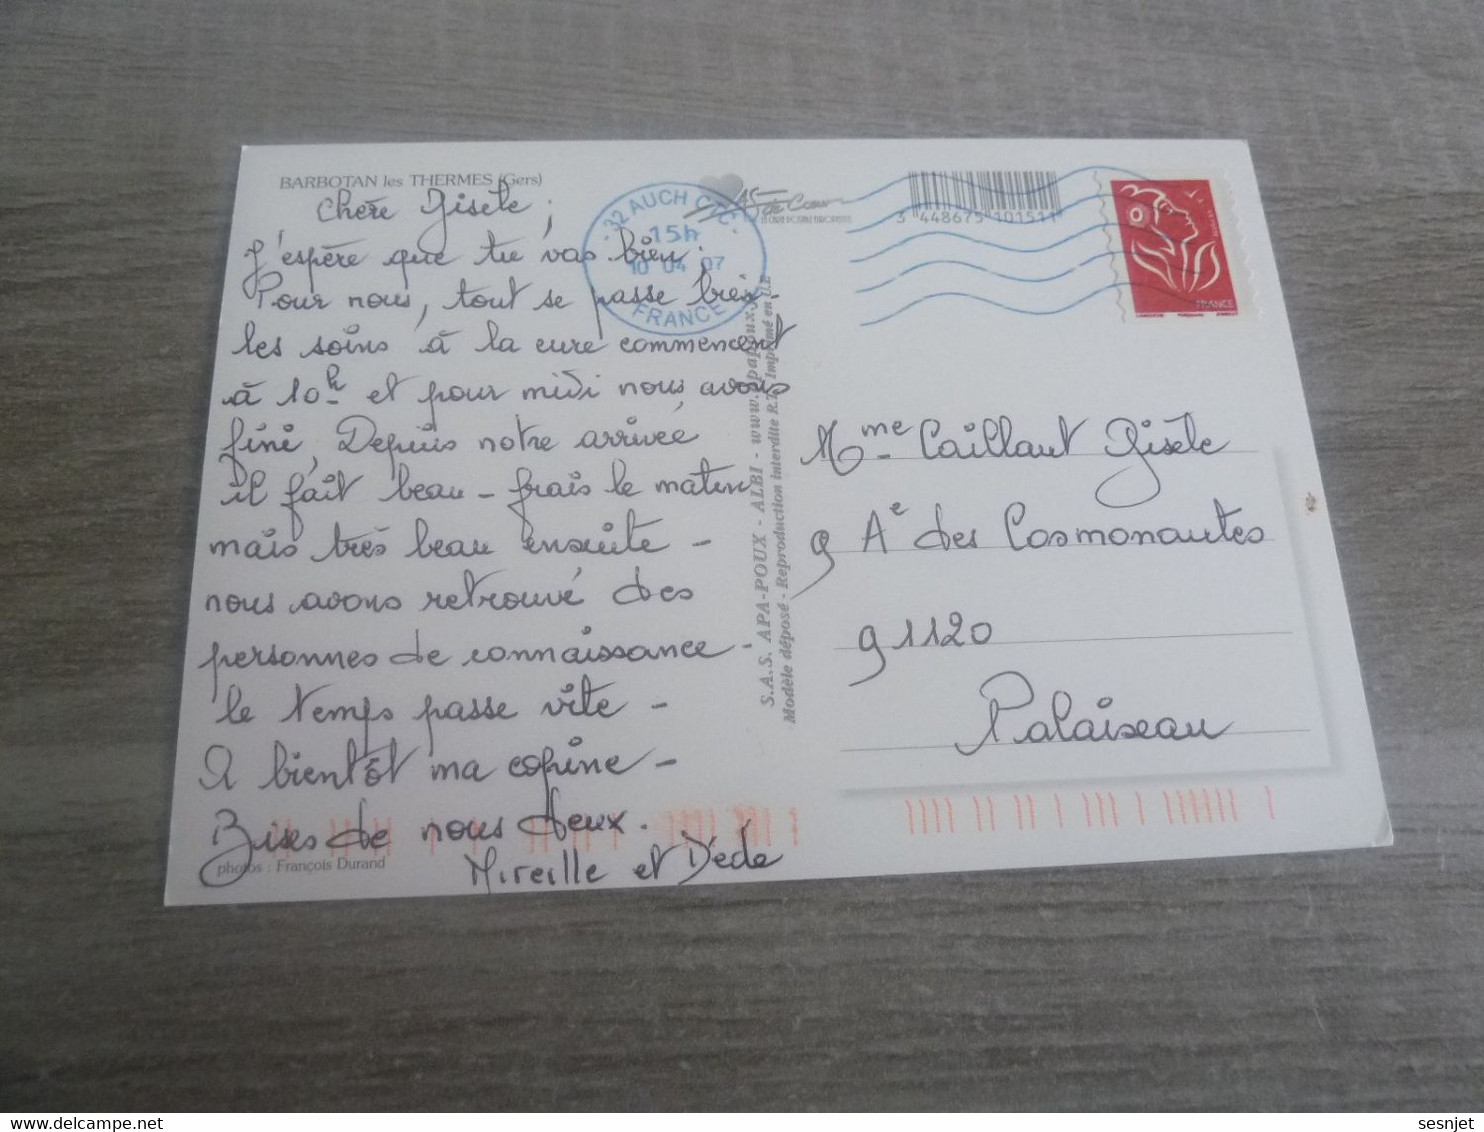 BARBOTAN les THERMES (Gers)
Chère Gisèle,
J'espère que tu vas bien.
Pour nous, tout se passe bien.
les soins à la cure commencent
à 10h et pour midi nous avons
fini. Depuis notre arrivée
il fait beau - frais le matin
mais très beau ensuite -
nous avons retrouvé des
personnes de connaissance -
le temps passe vite -
A bientôt ma copine -
Bises de nous deux.
Mireille et Dédé
photos : François Durand
32 AUCH CTC
15h
10 04 07
FRANCE
As de Cœur
3 448675 101511
FRANCE
S.A.S. APA-POUX - ALBI - www.apapoux.fr
Modèle déposé - Reproduction interdite R.T. Imprimé en U.E.
Mme Caillaut Gisèle
9 Ae des Cosmonautes
91120
Palaiseau
sesnjet